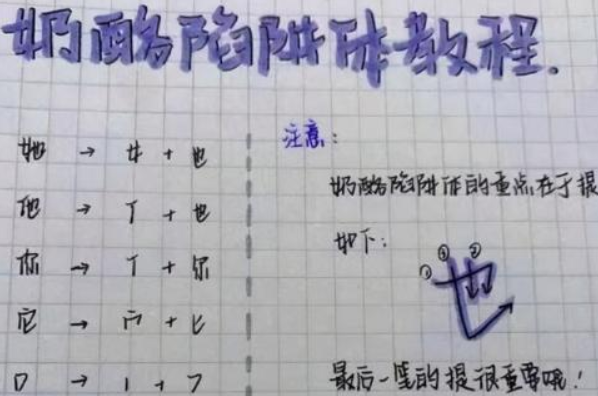 奶酪陷阱体教程.
她 → 女 + 也
他 → 亻 + 也
你 → 亻 + 尔
它 → 宀 + 匕
口 → 丨 + フ
注意：
奶酪陷阱体的重点在于提
如下：
① ② ③
最后一笔的提很重要哦！